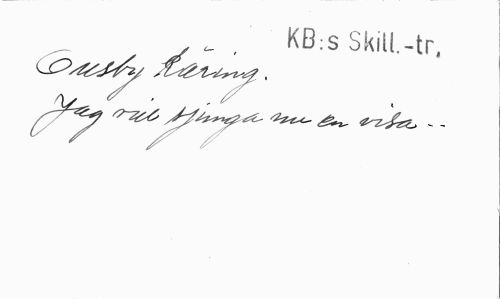 KB:s Skill.-tr.
Ousby Käring.
Jag vill sjunga nu en visa --